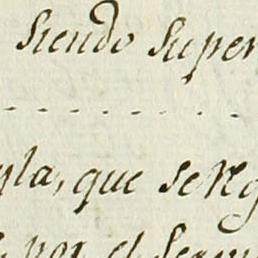 siendo super
yla, que se reg
por el Segun